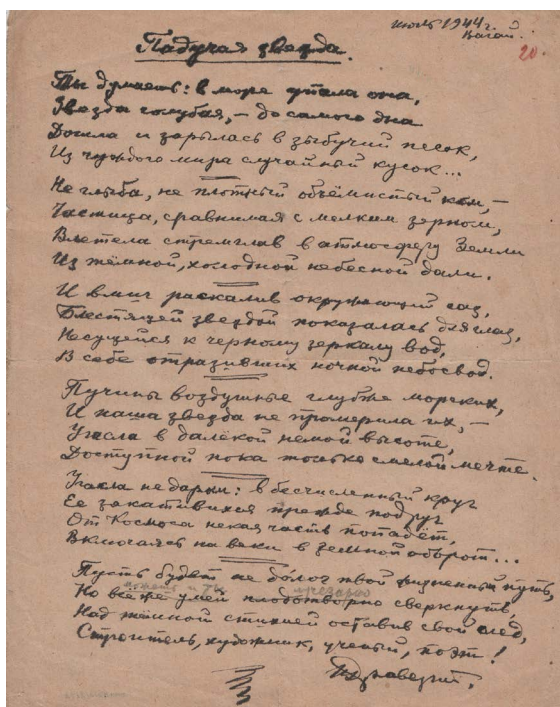 Июль 1944 г.
Вагай.
20.
Падучая звезда.
Ты думаешь: в море упала она,
Звезда голубая, – до самого дна
Дошла и зарылась в зыбучий песок,
Из чуждого мира случайный кусок...
Не глыба, не плотный объёмистый ком, –
Частица, сравнимая с мелким зерном,
Влетела стремглав в атмосферу Земли
Из тёмной, холодной небесной дали.
И вмиг раскалив окружающий газ,
Блестящей звездой показалась для глаз,
Несущейся к черному зеркалу вод,
В себе отразивших ночной небосвод.
Пучины воздушные глубже морских,
И наша звезда не промерила их, –
Угасла в далёкой немой высоте,
Доступной пока только смелой мечте.
Угасла не даром: в бесчисленный круг
Ее закатившихся прежде подруг
От Космоса некая часть попадёт,
Включаясь на веки в земной оборот...
Пусть будет не долог твой жизненный путь,
Но все же умей плодотворно сверкнуть
Над тёмной стихией оставив свой след,
Строитель, художник, учёный, поэт!